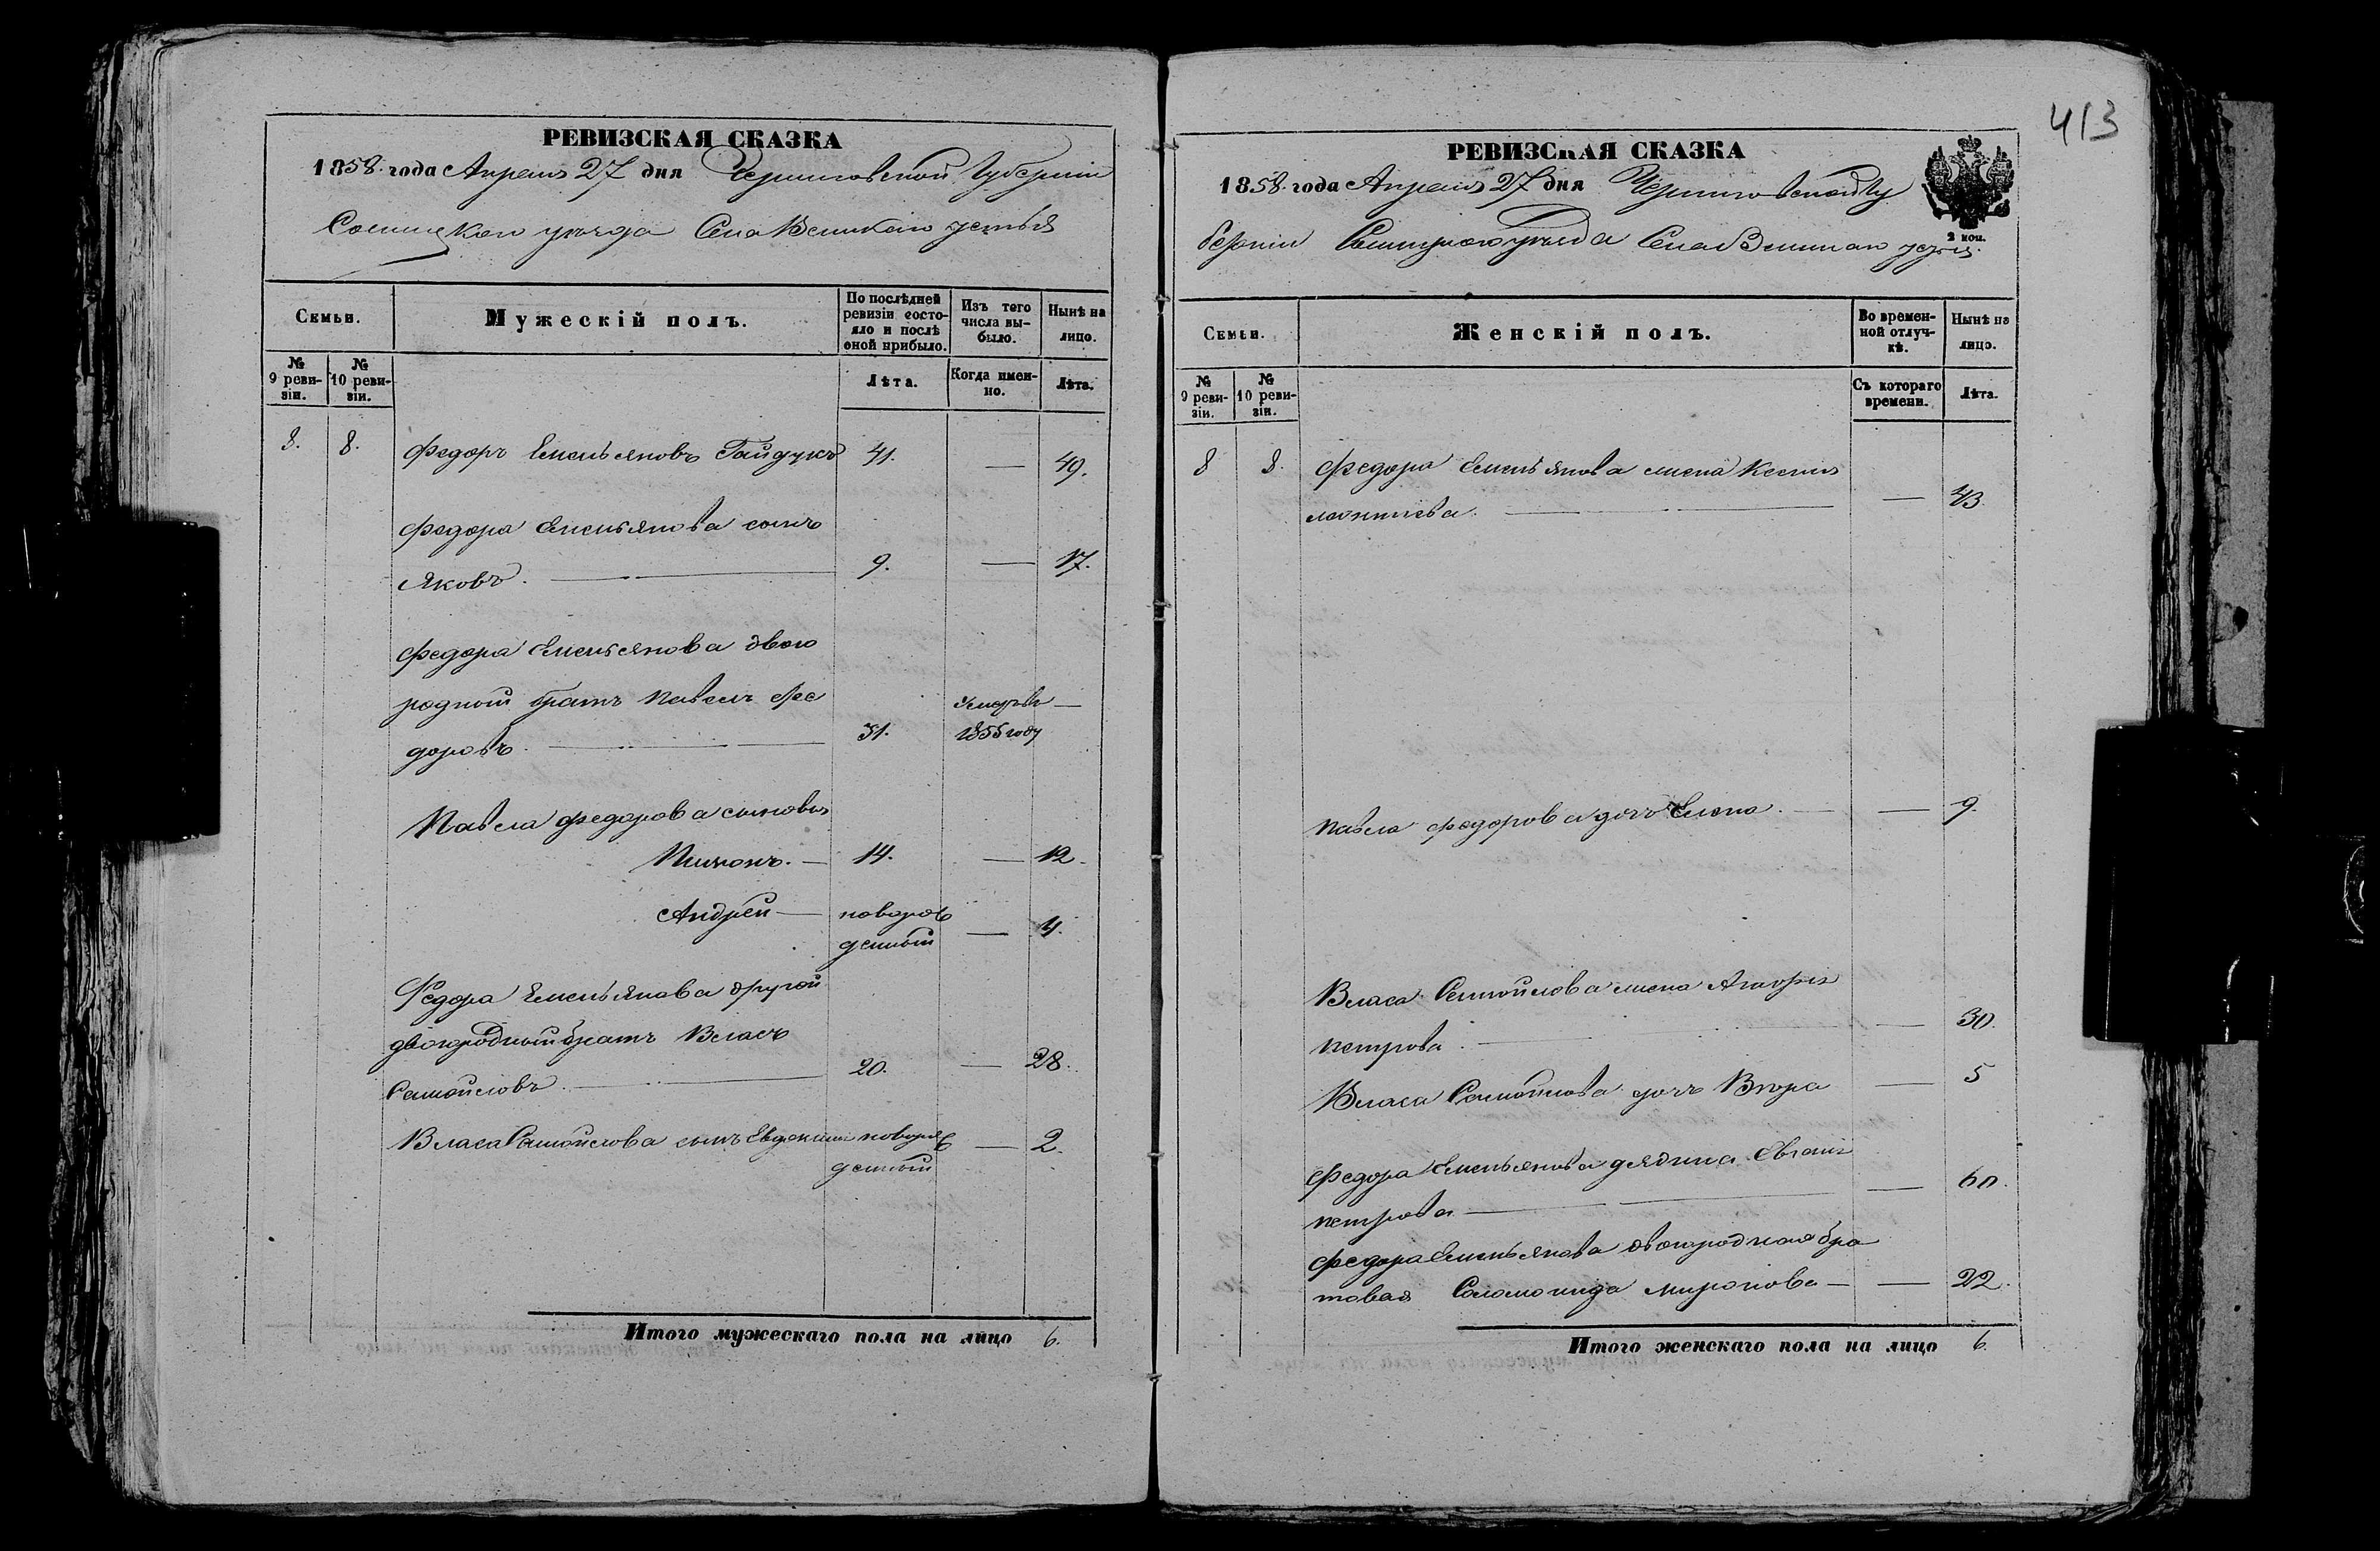 РЕВИЗСКАЯ СКАЗКА
1858. года Апреля 27 дня Черниговской Губернии
Сосницкаго уезда Села Великаго устья
Семьи.
Мужескій полъ.
По послѣдней ревизіи состояло и послѣ оной прибыло.
Изъ того числа выбыло.
Нынѣ на лицо.
№ 9 ревизіи.
№ 10 ревизіи.
Лѣта.
Когда именно.
Лѣта.
8. 8. Федоръ Емельяновъ Гайдукъ 41. — 49.
Федора Емельянова сынъ
Яковъ. — 9. — 17.
Федора Емельянова двою
родной братъ Павелъ Фе
доровъ. — 31. Умеръ въ 1855 году —
Павла Федорова сыновья
14. — 12.
Андрей — новорож
денный — 4.
Федора Емельянова другой
двоюродный братъ Власъ
Самойловъ. — 20. — 28.
Власа Самойлова сынъ Евдокимъ новорож
денный — 2.
Итого мужескаго пола на лицо 6.
413
РЕВИЗСКАЯ СКАЗКА
1858. года Апреля 27 дня Черниговской Гу
берніи Сосницкаго уезда Села Великаго устья.
2 коп.
Семьи.
Женскій полъ.
Во временной отлучкѣ.
Нынѣ на лицо.
№ 9 ревизіи.
№ 10 ревизіи.
Съ котораго времени.
Лѣта.
8 8. Федора Емельянова жена Ксенія
Леонтіева. — — 43.
Павла Федорова дочь Елена. — — 9.
Власа Самойлова жена
Петрова. — — 30.
Власа Самойлова дочь — 5
Федора Емельянова дядина
Петрова — — 60.
Федора Емельянова двоюродная бра
товая Соломонида Миронова — — 22.
Итого женскаго пола на лицо 6.